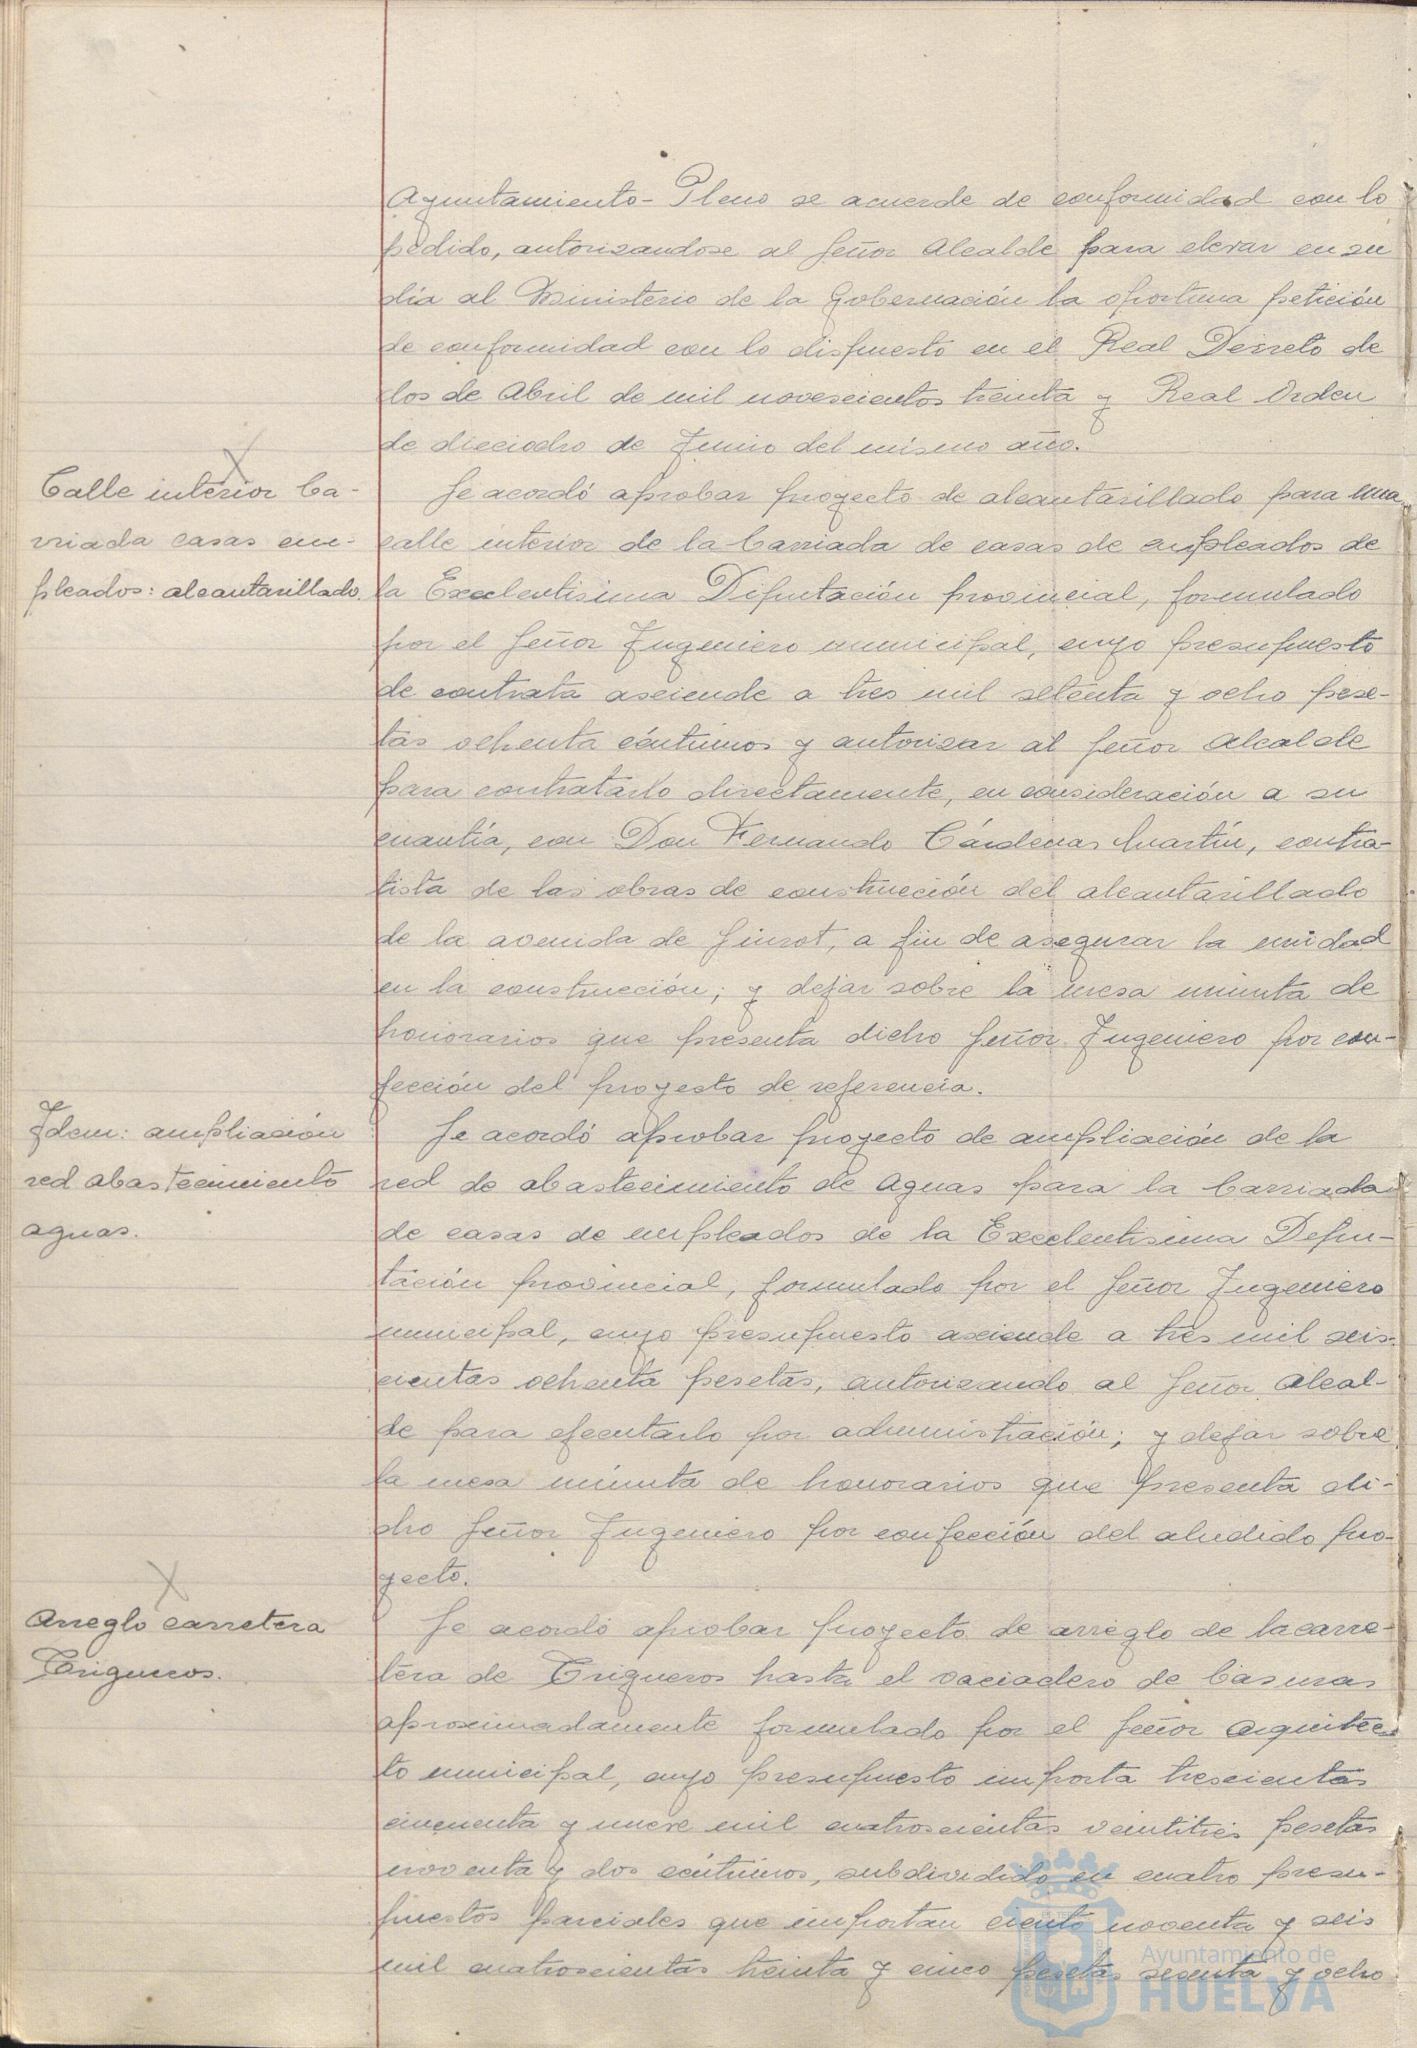 Ayuntamiento-Pleno se acuerde de conformidad con lo
pedido, autorizandose al Señor Alcalde para elevar en su
día al Ministerio de la Gobernación la oportuna petición
de conformidad con lo dispuesto en el Real Decreto de
dos de Abril de mil novescientos treinta y Real Orden
de dieciocho de Junio del mismo año.
Calle interior ba-
rriada casas em-
pleados: alcantarillado.
Se acordó aprobar proyecto de alcantarillado para una
calle interior de la barriada de casas de empleados de
la Excelentisima Diputación provincial, formulado
por el Señor Ingeniero municipal, cuyo presupuesto
de contrata asciende a tres mil setenta y ocho pese-
tas ochenta céntimos y autorizar al Señor Alcalde
para contratarlo directamente, en consideración a su
cuantía, con Don Fernando Cárdenas Martín, contra-
tista de las obras de construcción del alcantarillado
de la avenida de Siurot, a fin de asegurar la unidad
en la construcción; y dejar sobre la mesa minuta de
honorarios que presenta dicho Señor Ingeniero por con-
fección del proyecto de referencia.
Idem: ampliación
red abastecimiento
aguas.
Se acordó aprobar proyecto de ampliación de la
red de abastecimiento de Aguas para la barriada
de casas de empleados de la Excelentisima Dipu-
tación provincial, formulado por el Señor Ingeniero
municipal, cuyo presupuesto asciende a tres mil seis-
cientas ochenta pesetas, autorizando al Señor Alcal-
de para ejecutarlo por administración; y dejar sobre
la mesa minuta de honorarios que presenta di-
cho Señor Ingeniero por confección del aludido pro-
yecto.
Arreglo carretera
Trigueros.
Se acordó aprobar proyecto de arreglo de la carre-
tera de Trigueros hasta el vaciadero de basuras
aproximadamente formulado por el Señor Arquitec-
to municipal, cuyo presupuesto importa trescientas
cincuenta y nueve mil cuatroscientas veintitrés pesetas
noventa y dos céntimos, subdividido en cuatro presu-
puestos parciales que importan ciento noventa y seis
mil cuatroscientas treinta y cinco pesetas sesenta y ocho
Ayuntamiento de
HUELVA